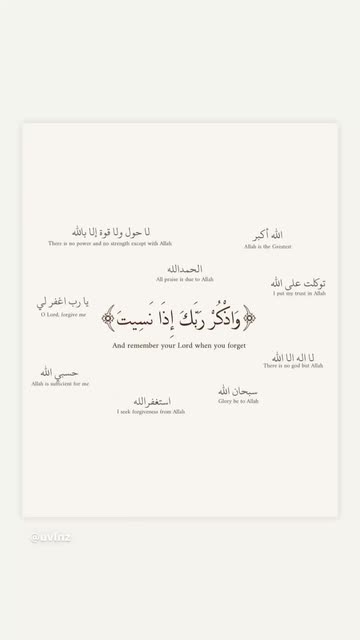 لا حول ولا قوة إلا بالله
There is no power and no strength except with Allah
الله أكبر
Allah is the Greatest
الحمدالله
All praise is due to Allah
توكلت على الله
I put my trust in Allah
يا رب اغفر لي
O Lord, forgive me
﴿وَاذْكُرْ رَبَّكَ إِذَا نَسِيتَ﴾
And remember your Lord when you forget
لا اله الا الله
There is no god but Allah
حسبي الله
Allah is sufficient for me
سبحان الله
Glory be to Allah
استغفرالله
I seek forgiveness from Allah
@uvlnz